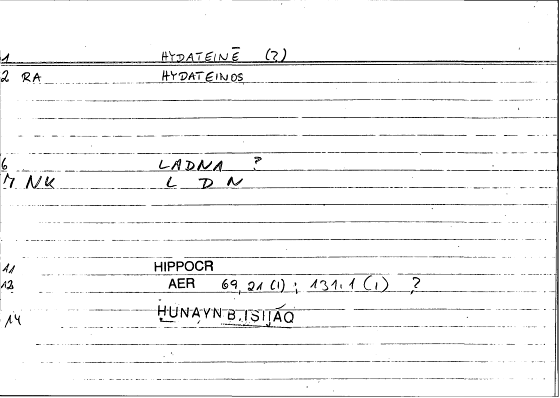 1 HYDATEINĒ (?)
2 RA HYDATEINOS
6 LADNA ?
7 NK L D N
11 HIPPOCR
12 AER 69,21 (1) ; 131,1 (1) ?
14 HUNAYN B. ISḤĀQ